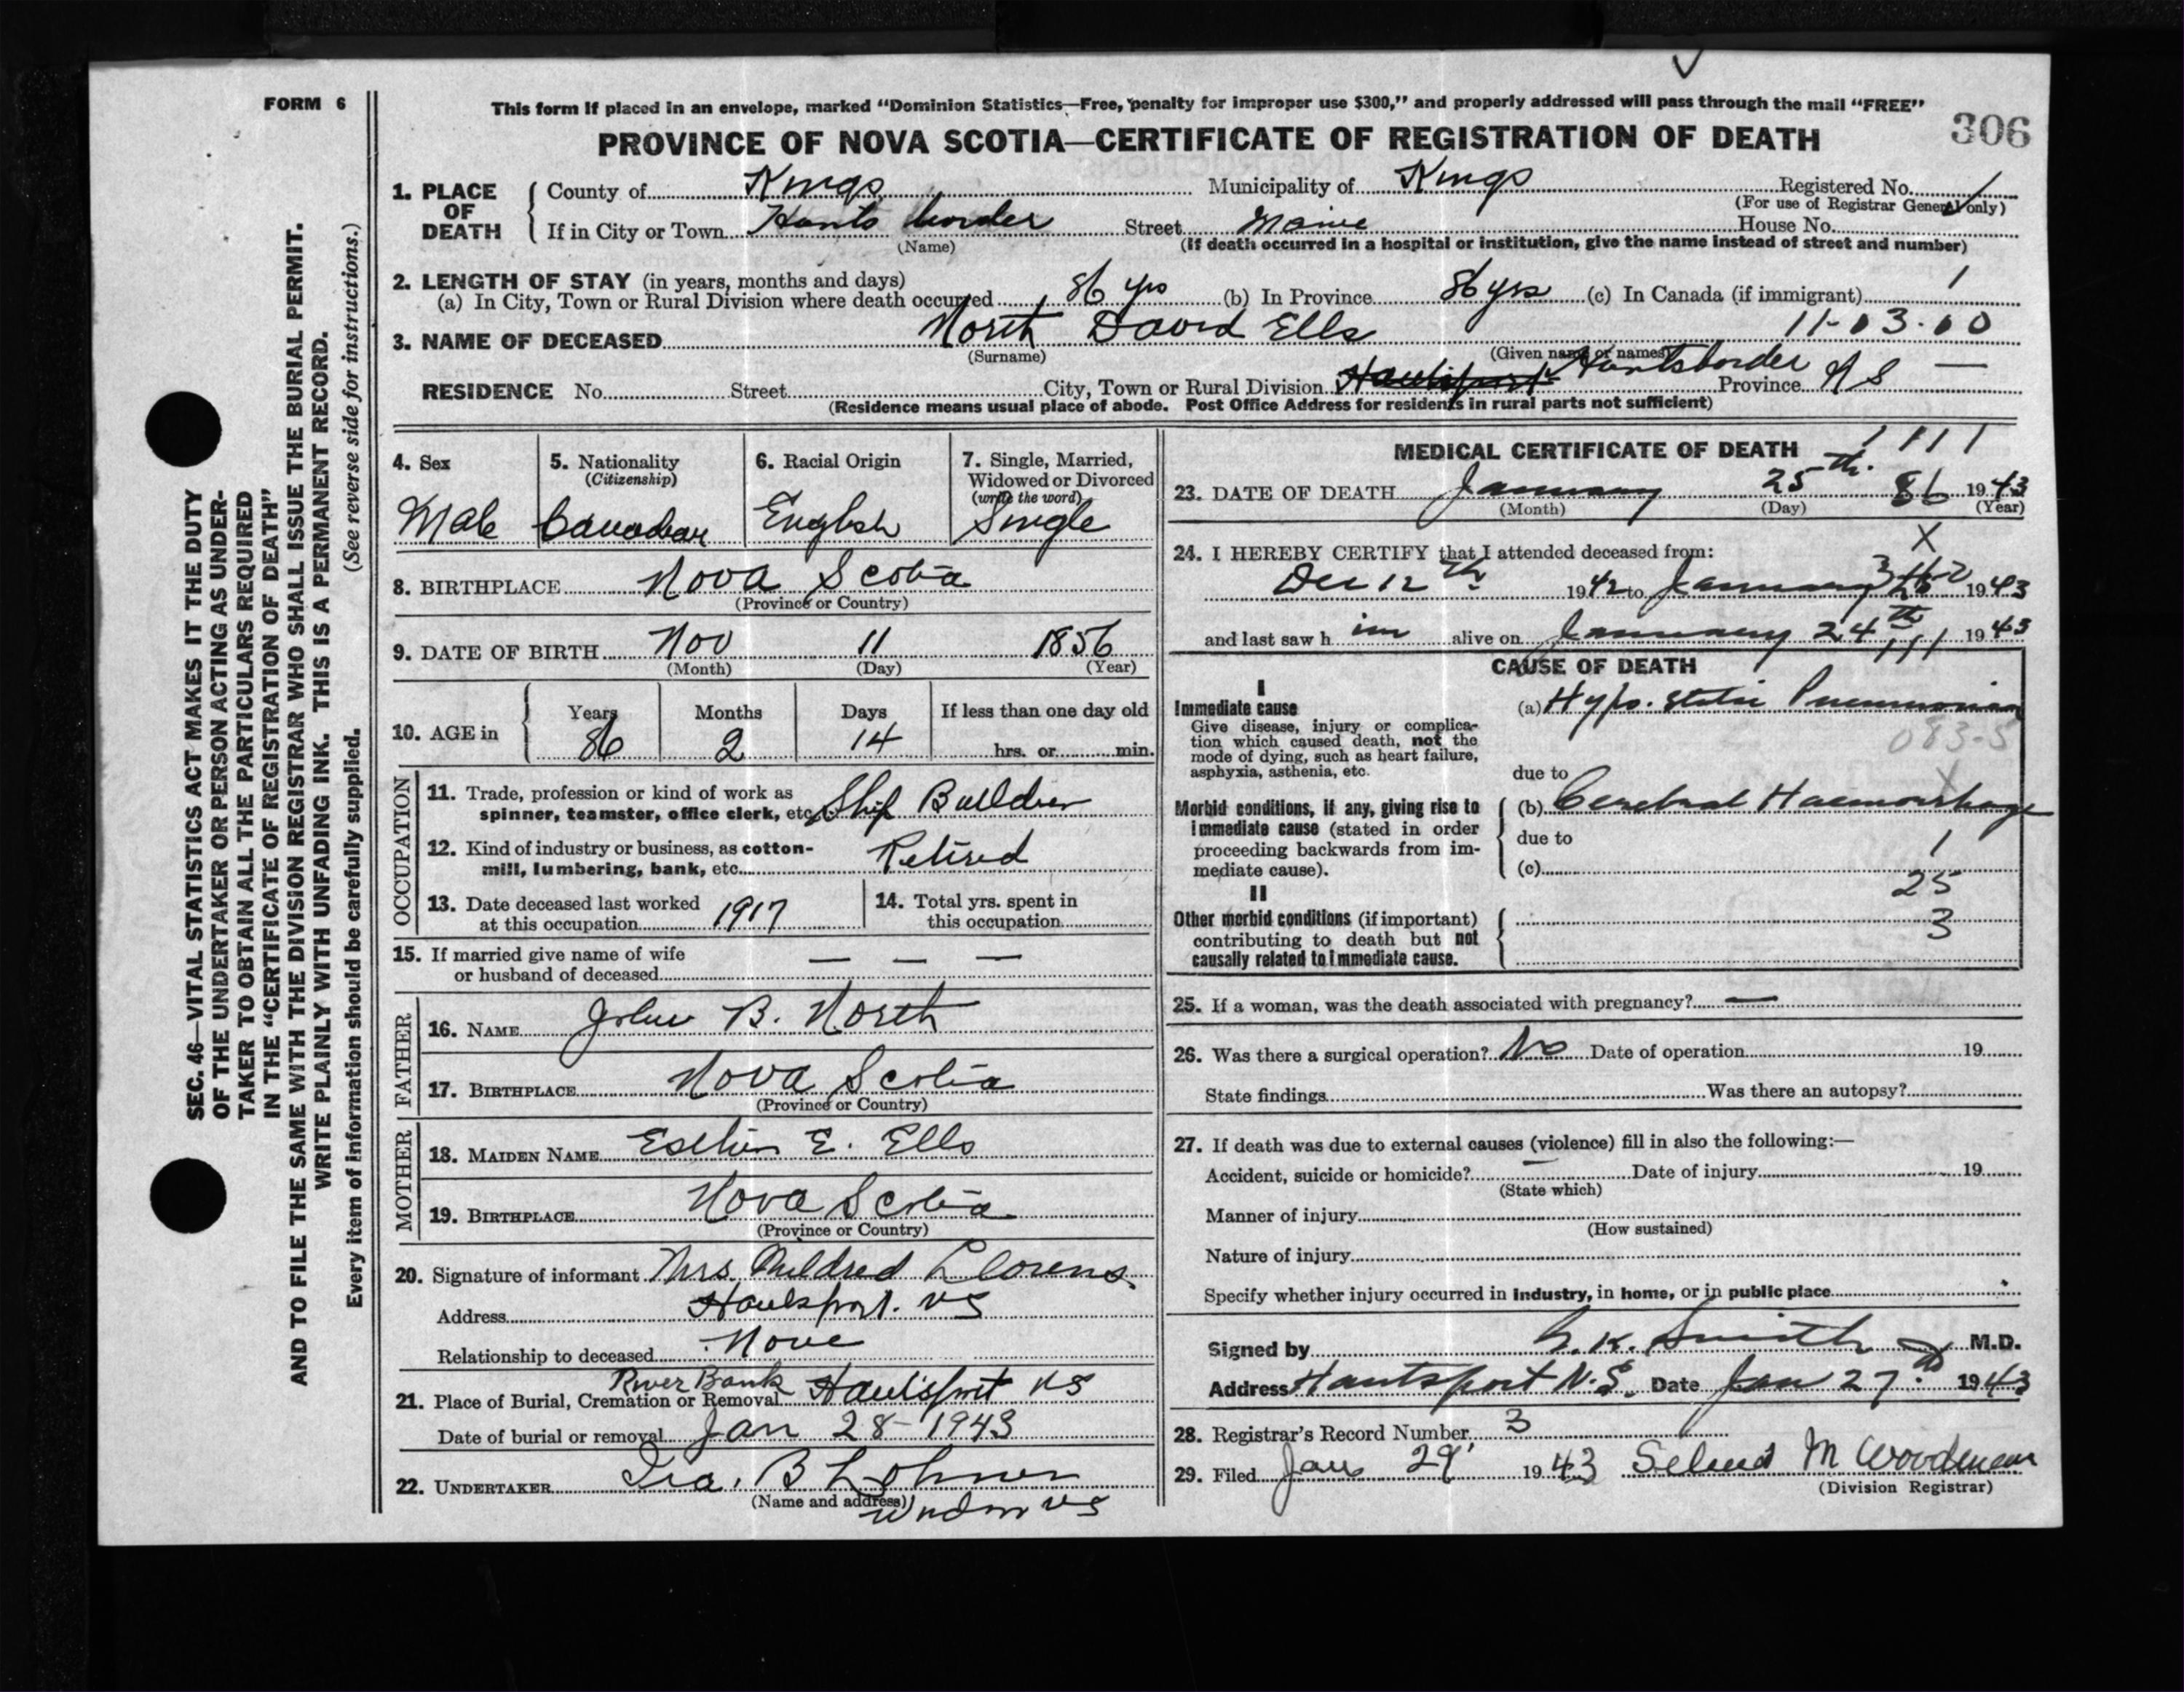 FORM 6
This form if placed in an envelope, marked “Dominion Statistics—Free, penalty for improper use $300,” and properly addressed will pass through the mail “FREE”
PROVINCE OF NOVA SCOTIA—CERTIFICATE OF REGISTRATION OF DEATH
306
1. PLACE OF DEATH
County of Kings Municipality of Kings Registered No.
(For use of Registrar General only)
If in City or Town Hants border Street House No.
(Name) (If death occurred in a hospital or institution, give the name instead of street and number)
2. LENGTH OF STAY (in years, months and days)
(a) In City, Town or Rural Division where death occurred 86 yrs (b) In Province 86 yrs (c) In Canada (if immigrant) 1
3. NAME OF DECEASED North David Ells 11-03-00
(Surname) (Given name or names)
RESIDENCE No. Street City, Town or Rural Division Hantsport Hantsborder Province N S —
(Residence means usual place of abode. Post Office Address for residents in rural parts not sufficient)
4. Sex
Male
5. Nationality
(Citizenship)
Canadian
6. Racial Origin
English
7. Single, Married, Widowed or Divorced
(write the word)
Single
8. BIRTHPLACE Nova Scotia
(Province or Country)
9. DATE OF BIRTH Nov 11 1856
(Month) (Day) (Year)
10. AGE in
Years Months Days If less than one day old
86 2 14 hrs. or min.
OCCUPATION
11. Trade, profession or kind of work as
spinner, teamster, office clerk, etc. Ship Builder
12. Kind of industry or business, as cotton-
mill, lumbering, bank, etc. Retired
13. Date deceased last worked
at this occupation 1917
14. Total yrs. spent in
this occupation
15. If married give name of wife
or husband of deceased — — —
FATHER
16. NAME John B. North
17. BIRTHPLACE Nova Scotia
(Province or Country)
MOTHER
18. MAIDEN NAME Esther E. Ells
19. BIRTHPLACE Nova Scotia
(Province or Country)
20. Signature of informant Mrs. Mildred
Address Hantsport. NS
Relationship to deceased None
21. Place of Burial, Cremation or Removal River Bank Hantsport NS
Date of burial or removal Jan 28 - 1943
22. UNDERTAKER Ira. B Lohnes
(Name and address) Windsor NS
MEDICAL CERTIFICATE OF DEATH 1 1 1 1
23. DATE OF DEATH January 25th. 86 1943
(Month) (Day) (Year)
24. I HEREBY CERTIFY that I attended deceased from: X
Dec 12th 1942 to January 1943
and last saw him alive on January 24th 1943
CAUSE OF DEATH
I
Immediate cause
Give disease, injury or complica-
tion which caused death, not the
mode of dying, such as heart failure,
asphyxia, asthenia, etc.
(a) Hypo. static Pneumonia
083-5
due to
Morbid conditions, if any, giving rise to
immediate cause (stated in order
proceeding backwards from im-
mediate cause).
(b) Cerebral Haemorrhage
due to
(c) 1
25
II
Other morbid conditions (if important)
contributing to death but not
causally related to immediate cause.
3
25. If a woman, was the death associated with pregnancy? —
26. Was there a surgical operation? No Date of operation 19
State findings Was there an autopsy?
27. If death was due to external causes (violence) fill in also the following:—
Accident, suicide or homicide? Date of injury 19
(State which)
Manner of injury
(How sustained)
Nature of injury
Specify whether injury occurred in industry, in home, or in public place
Signed by Smith M.D.
Address Hantsport N.S. Date Jan 27th 1943
28. Registrar's Record Number 3
29. Filed Jan 29 1943 M Woodman
(Division Registrar)
SEC. 46—VITAL STATISTICS ACT MAKES IT THE DUTY
OF THE UNDERTAKER OR PERSON ACTING AS UNDER-
TAKER TO OBTAIN ALL THE PARTICULARS REQUIRED
IN THE “CERTIFICATE OF REGISTRATION OF DEATH”
AND TO FILE THE SAME WITH THE DIVISION REGISTRAR WHO SHALL ISSUE THE BURIAL PERMIT.
WRITE PLAINLY WITH UNFADING INK. THIS IS A PERMANENT RECORD.
Every item of information should be carefully supplied. (See reverse side for instructions.)